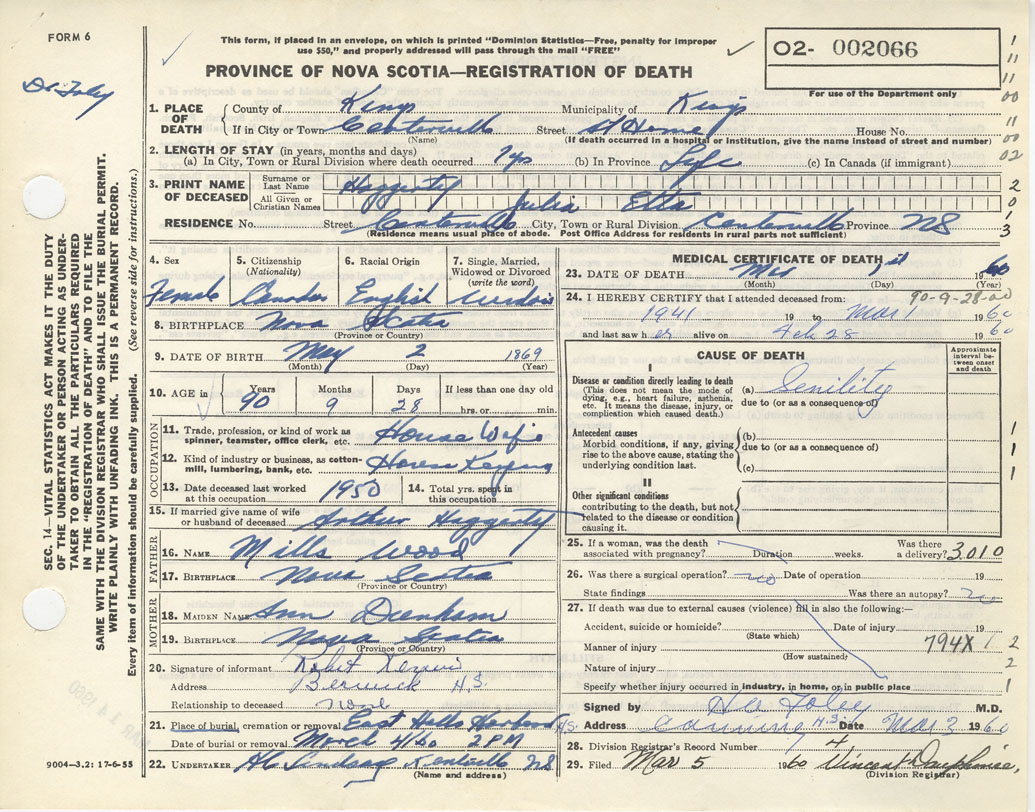 FORM 6
This form, if placed in an envelope, on which is printed "Dominion Statistics—Free, penalty for improper
use $50," and properly addressed will pass through the mail "FREE"
02- 002066
For use of the Department only
PROVINCE OF NOVA SCOTIA—REGISTRATION OF DEATH
Dr Foley
1. PLACE OF DEATH County of Kings Municipality of Kings
If in City or Town Centerville Street at Home House No.
(Name) (If death occurred in a hospital or institution, give the name instead of street and number)
2. LENGTH OF STAY (in years, months and days)
(a) In City, Town or Rural Division where death occurred 7 yrs (b) In Province Life (c) In Canada (if immigrant)
3. PRINT NAME OF DECEASED Surname or Last Name Haggerty
All Given or Christian Names Julia Etta
RESIDENCE No. Street Centerville City, Town or Rural Division Centerville Province NS
(Residence means usual place of abode. Post Office Address for residents in rural parts not sufficient)
4. Sex Female
5. Citizenship (Nationality)
6. Racial Origin English
7. Single, Married, Widowed or Divorced (write the word)
8. BIRTHPLACE Nova Scotia
(Province or Country)
9. DATE OF BIRTH May 2 1869
(Month) (Day) (Year)
10. AGE in Years 90 Months 9 Days 28 If less than one day old hrs. or min.
OCCUPATION
11. Trade, profession, or kind of work as spinner, teamster, office clerk, etc. House Wife
12. Kind of industry or business, as cotton-mill, lumbering, bank, etc.
13. Date deceased last worked at this occupation 1950
14. Total yrs. spent in this occupation
15. If married give name of wife or husband of deceased Arthur Haggerty
FATHER
16. NAME Mills Wood
17. BIRTHPLACE Nova Scotia
(Province or Country)
MOTHER
18. MAIDEN NAME Ann
19. BIRTHPLACE Nova Scotia
(Province or Country)
20. Signature of informant Robert
Address Berwick N.S.
Relationship to deceased none
21. Place of burial, cremation or removal East Halls Harbour N.S.
Date of burial or removal March 4/60 2 PM
22. UNDERTAKER Lindsay Kentville NS
(Name and address)
MEDICAL CERTIFICATE OF DEATH
23. DATE OF DEATH Mar 1st 1960
(Month) (Day)
24. I HEREBY CERTIFY that I attended deceased from: 90-9-28-00
1941 19 to Mar 1 1960
and last saw her alive on Feb 28 1960
CAUSE OF DEATH
Approximate interval between onset and death
I
Disease or condition directly leading to death (a) Senility
(This does not mean the mode of dying, e.g., heart failure, asthenia, etc. It means the disease, injury, or complication which caused death.)
due to (or as a consequence of)
Antecedent causes (b)
Morbid conditions, if any, giving rise to the above cause, stating the underlying condition last.
due to (or as a consequence of)
(c)
II
Other significant conditions contributing to the death, but not related to the disease or condition causing it.
25. If a woman, was the death associated with pregnancy? Duration weeks. Was there a delivery? 3010
26. Was there a surgical operation? no Date of operation 19
State findings Was there an autopsy? no
27. If death was due to external causes (violence) fill in also the following:—
Accident, suicide or homicide? Date of injury 19
(State which)
Manner of injury 794X
(How sustained)
Nature of injury
Specify whether injury occurred in industry, in home, or in public place
Signed by Foley M.D.
Address Canning N.S. Date Mar 2 1960
28. Division Registrar's Record Number 4
29. Filed Mar 5 1960 Vincent
(Division Registrar)
SEC. 14—VITAL STATISTICS ACT MAKES IT THE DUTY
OF THE UNDERTAKER OR PERSON ACTING AS UNDER-
TAKER TO OBTAIN ALL THE PARTICULARS REQUIRED
IN THE "REGISTRATION OF DEATH" AND TO FILE THE
SAME WITH THE DIVISION REGISTRAR WHO SHALL ISSUE THE BURIAL PERMIT.
WRITE PLAINLY WITH UNFADING INK. THIS IS A PERMANENT RECORD.
Every item of information should be carefully supplied. (See reverse side for instructions.)
9004-3.2: 17-6-55
1
11
11
00
11
00
02
2
0
1
3
1
1
1
1 2
2
1